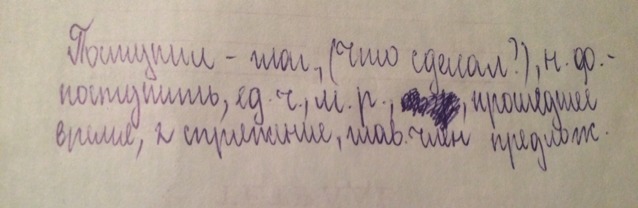 Поступил - глаг., (Что сделал?), н.ф.-
поступить, ед.ч., м.р., прошедшее
время, 2 спряжение, глав.член предлож.